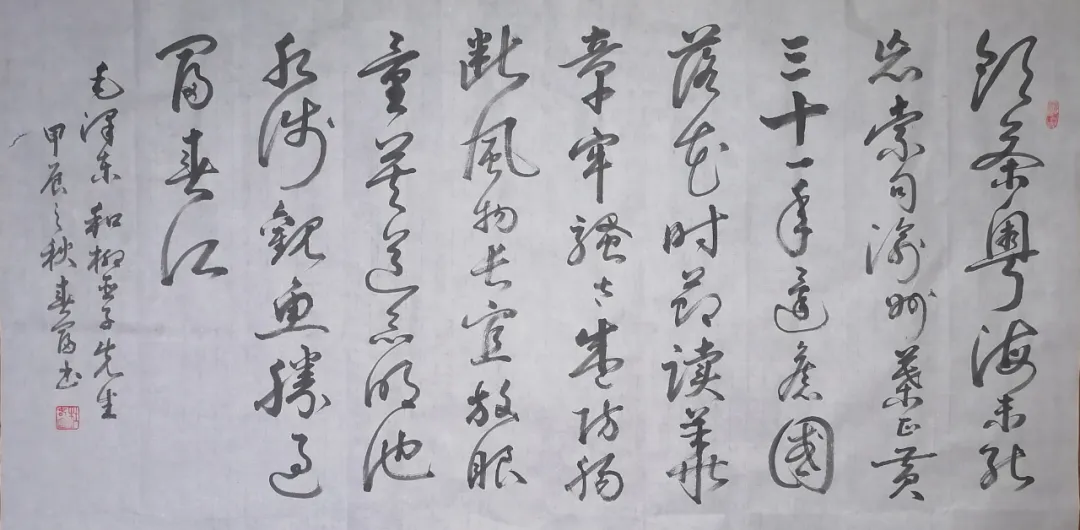 饮茶粤海未能
忘索句渝州葉正黄
三十一年還舊國
落花时節读華
章牢骚太盛防肠
断風物长宜放眼
量莫道昆明池
水浅觀鱼勝过
富春江
毛泽东 和柳亚子先生
甲辰之秋 春富书